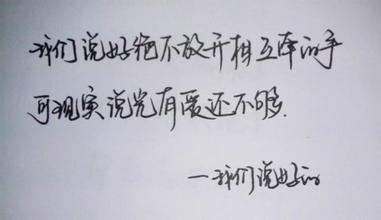 我们说好绝不放开相互牵的手
可现实说光有爱还不够.
—我们说好的